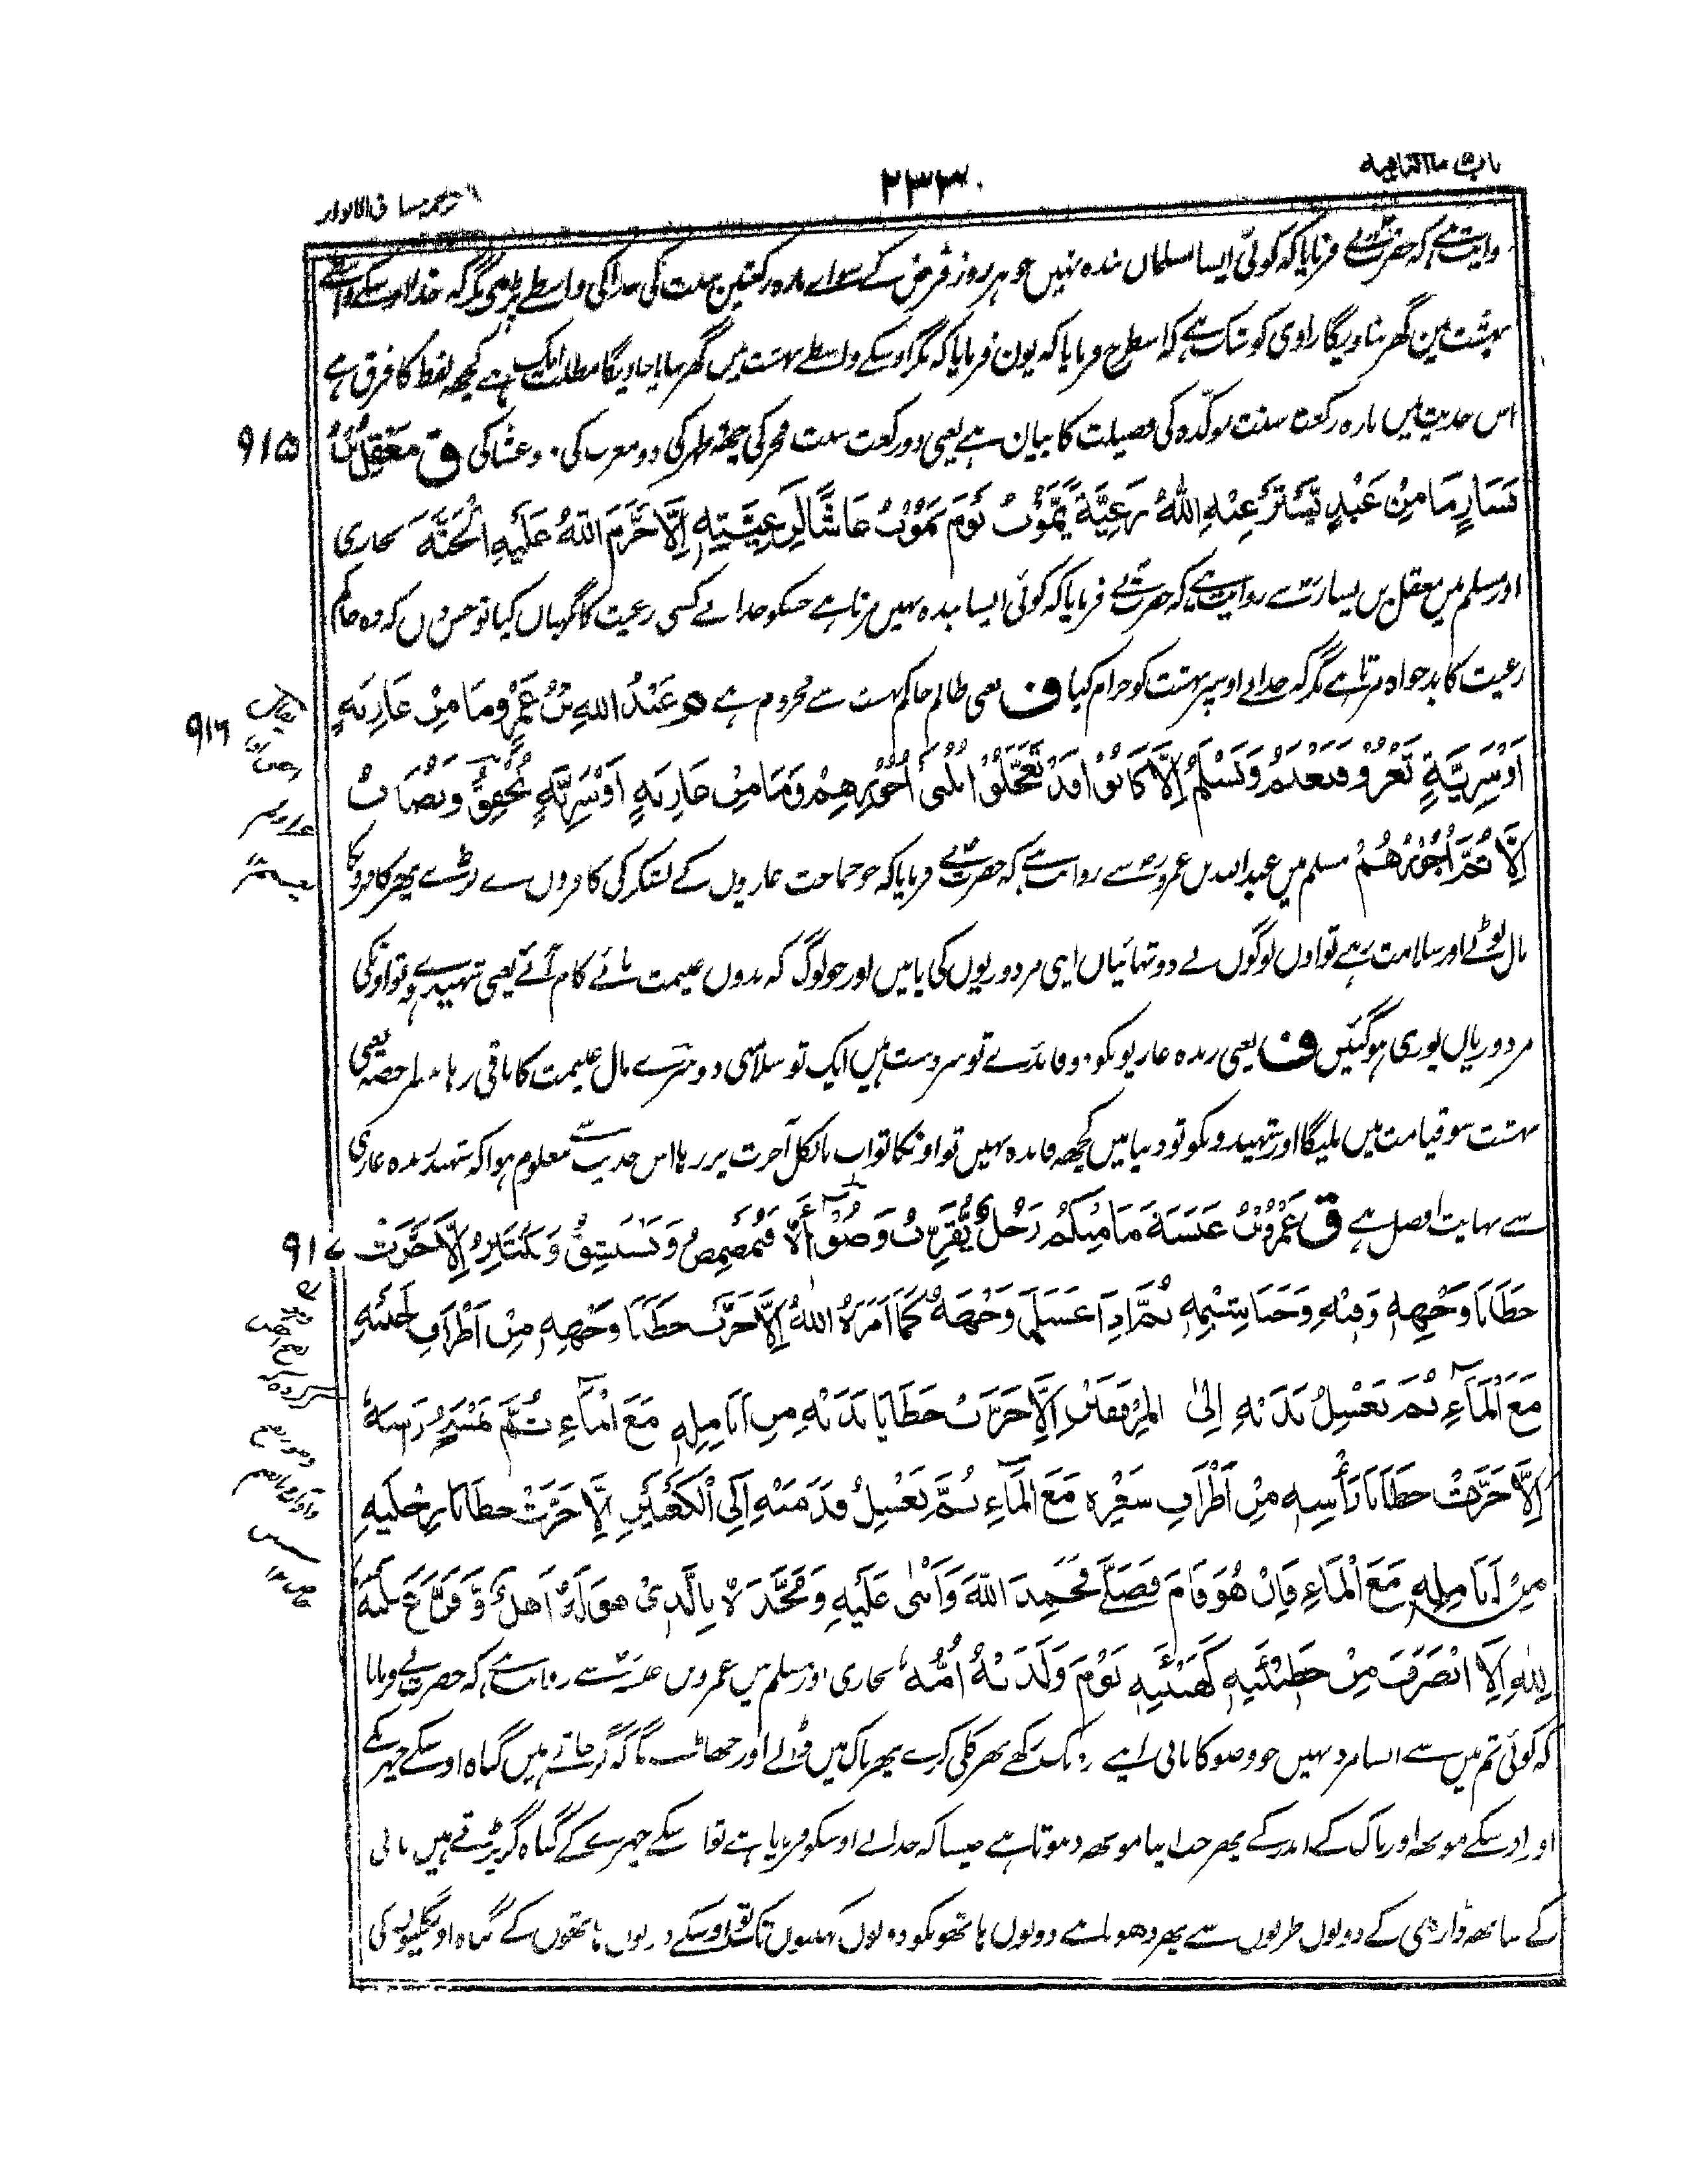 باب ما النافیه
٢٣٣
ترجمہ مشارق الانوار
روایت ہے کہ حضرت نے فرمایا کہ کوئی ایسا مسلمان بندہ نہیں جو ہر روز فرض کے سوا بارہ رکعتیں سنت کی خدا کی واسطے پڑھی مگر کہ خدا اوسکے واسطے
بہشت مین گھر بنا دیگا راوی کو شک ہے کہ اسطرح فرمایا کہ یون فرمایا کہ مگر اوسکے واسطے بہشت میں گھر بنایا جاویگا مطلب ایک ہے کچھ لفظ کا فرق ہے
اس حدیث میں بارہ رکعت سنت موکدہ کی فضیلت کا بیان ہے یعنی دو رکعت سنت فجر کی چھ ظہر کی دو مغرب کی دو عشا کی ق مَعْقِلُ بْنُ
٩١٥
يَسَارٍ مَا مِنْ عَبْدٍ يَسْتَرْعِيْهِ اللّٰهُ رَعِيَّةً يَمُوْتُ يَوْمَ يَمُوْتُ غَاشًّا لِرَعِيَّتِهٖ اِلَّا حَرَّمَ اللّٰهُ عَلَيْهِ الْجَنَّةَ بخاری
اور مسلم میں معقل بن یسار سے روایت ہے کہ حضرت نے فرمایا کہ کوئی ایسا بندہ نہیں مرتا ہے جسکو خدا نے کسی رعیت کا نگہبان کیا تو جس دن کہ وہ حاکم
رعیت کا بدخواہ مرتا ہے مگر کہ خدا نے اوسپر بہشت کو حرام کیا ف یعنی ظالم حاکم بہشت سے محروم ہے م عَبْدُ اللّٰهِ بْنُ عَمْرٍو مَا مِنْ غَازِيَةٍ
٩١٦
اَوْ سَرِيَّةٍ تَغْزُوْ فَتَغْنَمُ وَتَسْلَمُ اِلَّا كَانُوْا قَدْ تَعَجَّلُوْا ثُلُثَىْ اُجُوْرِهِمْ وَمَا مِنْ غَازِيَةٍ اَوْ سَرِيَّةٍ تُخْفِقُ وَتُصَابُ
اِلَّا تَمَّ اُجُوْرُهُمْ مسلم میں عبد اللہ بن عمرو سے روایت ہے کہ حضرت نے فرمایا کہ جو جماعت غازیوں کے لشکر کی کافروں سے لڑے پھر کافرونکا
مال لوٹے اور سلامت رہے تو اون لوگوں نے دو تہائیاں اپنی مزدوریوں کی پائیں اور جو لوگ کہ بدوں غنیمت پائے کام آئے یعنی شہید ہوے تو اونکی
مزدوریاں پوری ہوگئیں ف یعنی زندہ غازیونکو دو فائدے تو سردست ہیں ایک تو سلامتی دوسرے مال غنیمت کا باقی رہا تیسرا حصہ یعنی
بہشت سو قیامت میں ملیگا اور شہیدونکو تو دنیا میں کچھ فائدہ نہیں تو اونکا ثواب بالکل آخرت پر رہا اس حدیث سے معلوم ہوا کہ شہید زندہ غازی
سے نہایت افضل ہے ق عَمْرُو بْنُ عَبَسَةَ مَا مِنْكُمْ رَجُلٌ يُقَرِّبُ وَضُوْءَهٗ فَيُمَضْمِضُ وَيَسْتَنْشِقُ وَيَنْتَثِرُ اِلَّا خَرَّتْ
٩١٧
خَطَايَا وَجْهِهٖ وَفِيْهِ وَخَيَاشِيْمِهٖ ثُمَّ اِذَا غَسَلَ وَجْهَهٗ كَمَا اَمَرَهُ اللّٰهُ اِلَّا خَرَّتْ خَطَايَا وَجْهِهٖ مِنْ اَطْرَافِ لِحْيَتِهٖ
مَعَ الْمَآءِ ثُمَّ يَغْسِلُ يَدَيْهِ اِلَى الْمِرْفَقَيْنِ اِلَّا خَرَّتْ خَطَايَا يَدَيْهِ مِنْ اَنَامِلِهٖ مَعَ الْمَآءِ ثُمَّ يَمْسَحُ رَأْسَهٗ
اِلَّا خَرَّتْ خَطَايَا رَأْسِهٖ مِنْ اَطْرَافِ شَعْرِهٖ مَعَ الْمَآءِ ثُمَّ يَغْسِلُ قَدَمَيْهِ اِلَى الْكَعْبَيْنِ اِلَّا خَرَّتْ خَطَايَا رِجْلَيْهِ
مِنْ اَنَامِلِهٖ مَعَ الْمَاءِ فَاِنْ هُوَ قَامَ فَصَلّٰى فَحَمِدَ اللّٰهَ وَاَثْنٰى عَلَيْهِ وَمَجَّدَهٗ بِالَّذِىْ هُوَ لَهٗ اَهْلٌ وَّفَرَّغَ قَلْبَهٗ
لِلّٰهِ اِلَّا انْصَرَفَ مِنْ خَطِيْئَتِهٖ كَهَيْئَتِهٖ يَوْمَ وَلَدَتْهُ اُمُّهٗ بخاری اور مسلم میں عمرو بن عبسہ سے روایت ہے کہ حضرت نے فرمایا
کہ کوئی تم میں سے ایسا مرد نہیں جو وضو کا پانی اپنے نزدیک رکھے پھر کلی کرے پھر ناک میں ڈالے اور جھاڑے مگر کہ گر جاتے ہیں گناہ اوسکے چہرے کے
اور اوسکے مونھ اور ناک کے اندر کے پھر جب اپنا مونھ دھوتا ہے جیسا کہ خدا نے اوسکو فرمایا ہے تو اوسکے چہرے کے گناہ گر پڑتے ہیں پانی
کے ساتھ ڈاڑھی کے دونوں طرفوں سے پھر دھوتا ہے دونوں ہاتھونکو دونوں کہنیوں تک تو اوسکے دونوں ہاتھوں کے گناہ اونگلیوں کی